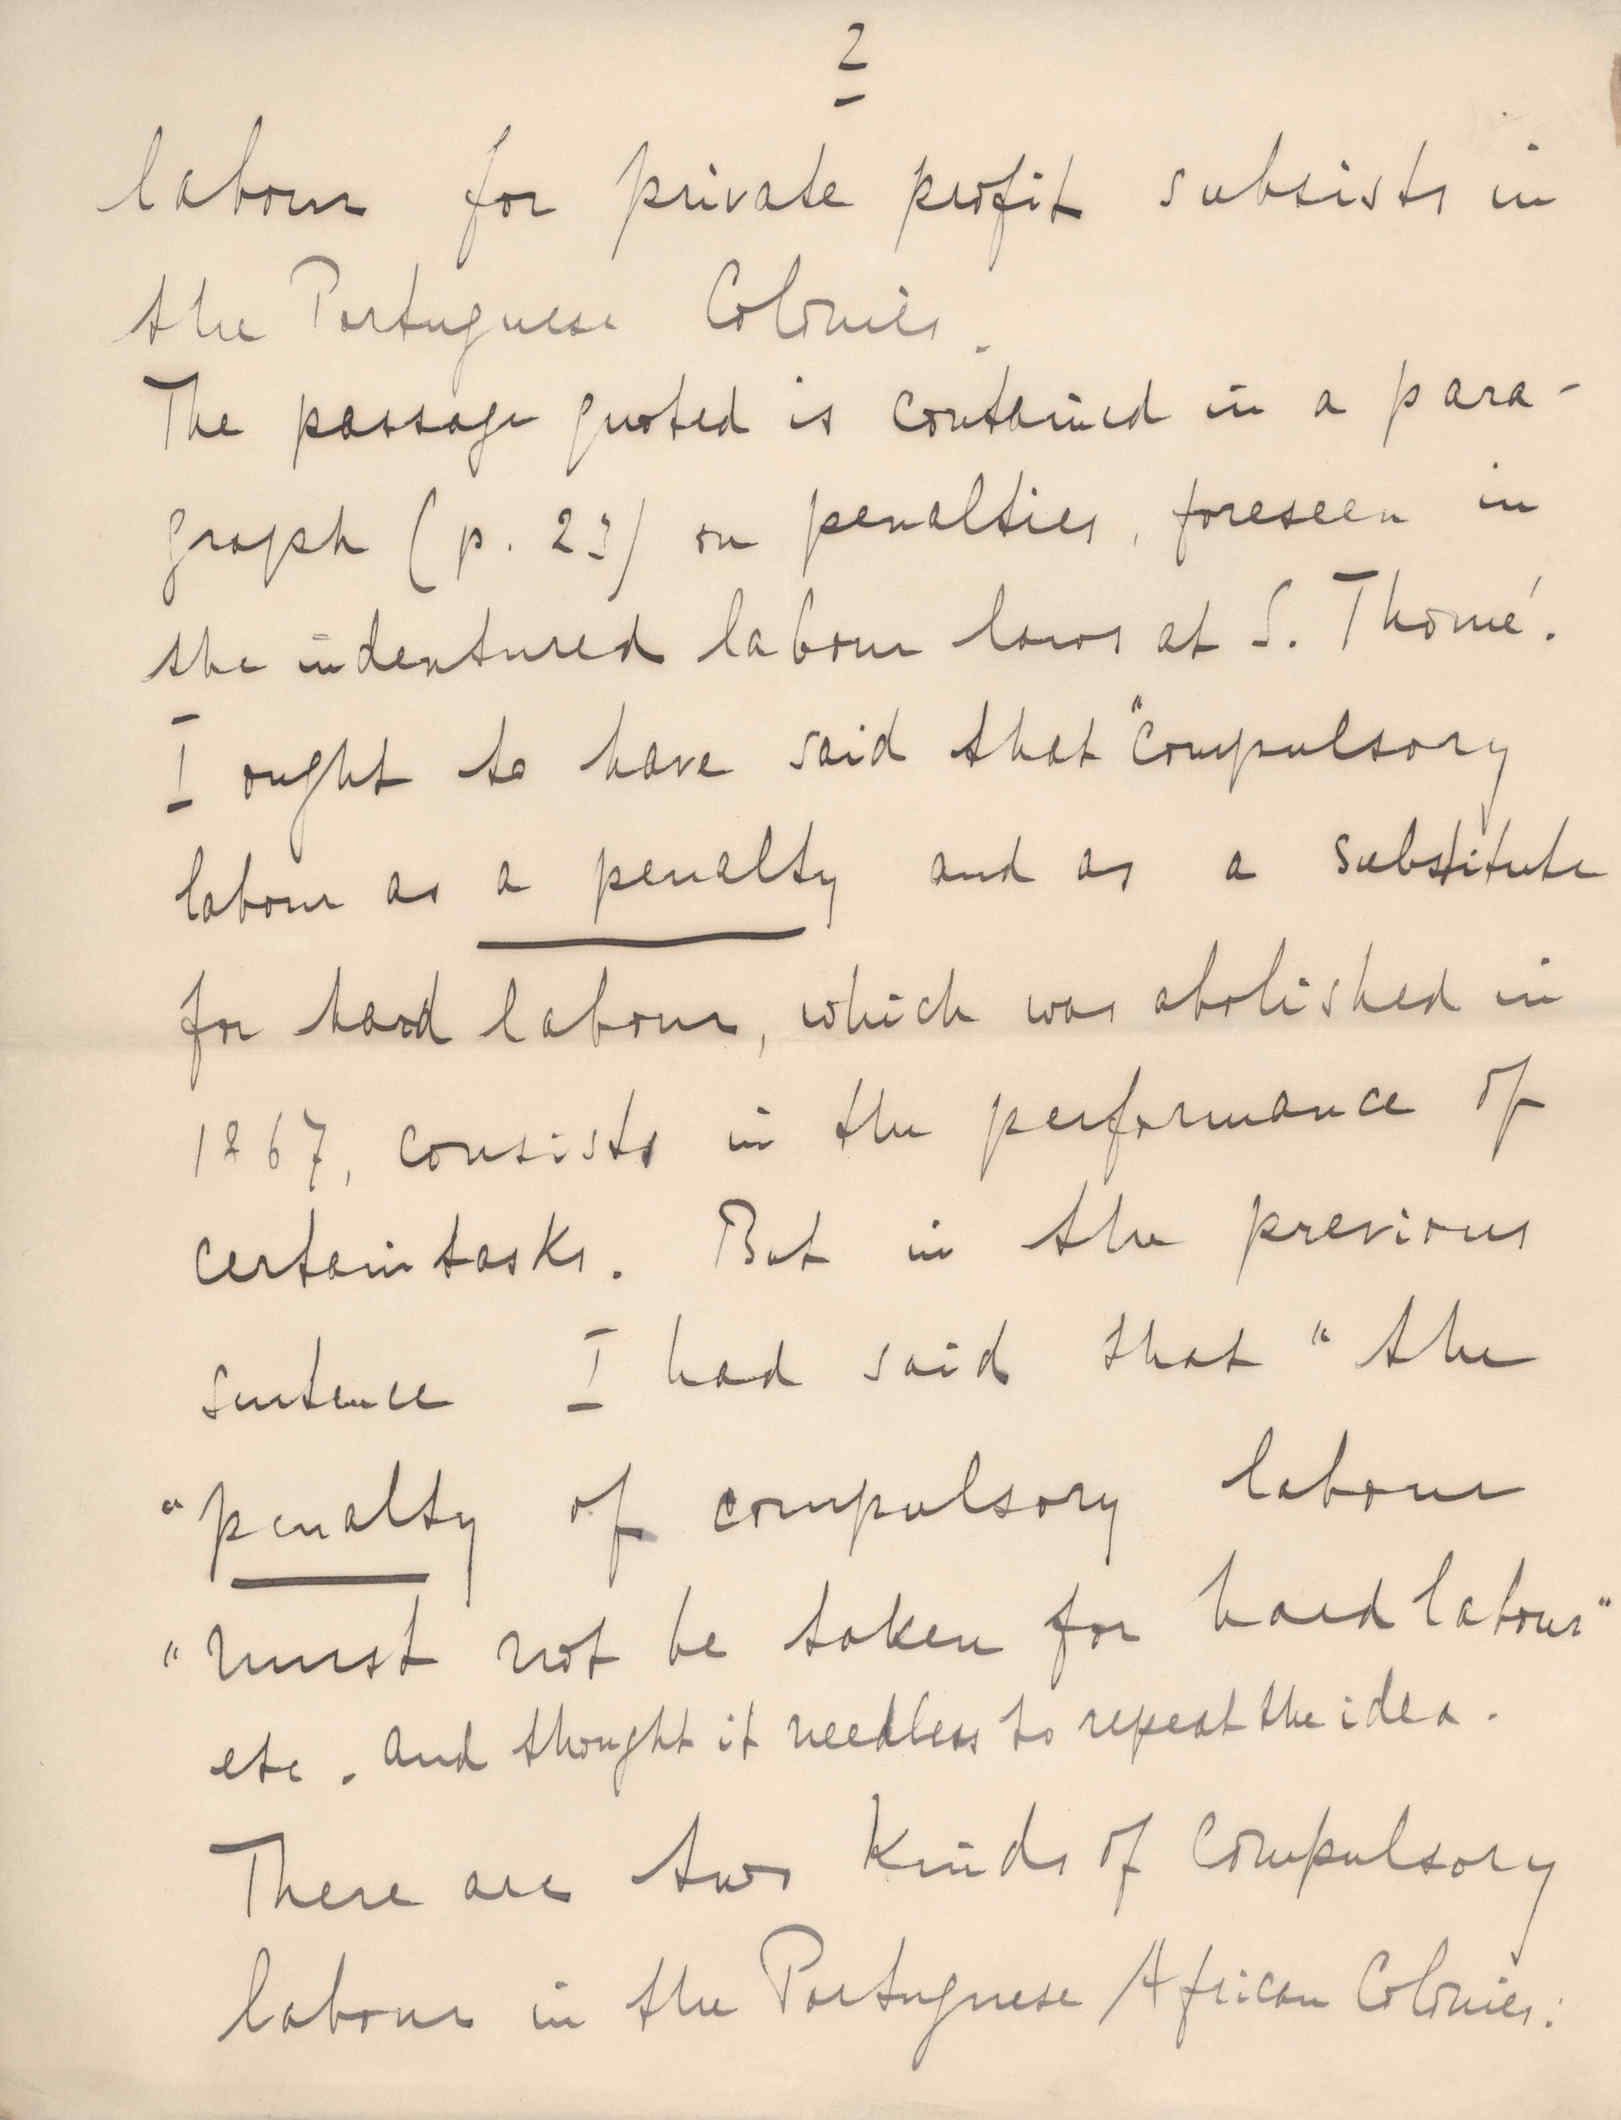 2
labour for private profit subsists in
the Portuguese Colonies.
The passage quoted is contained in a para-
graph (p. 23) on penalties, foreseen in
the indentured labour laws at S. Thomé.
I ought to have said that "compulsory
labour as a penalty and as a substitute
for hard labour, which was abolished in
1867, consists in the performance of
certain tasks. But in the previous
sentence I had said that "the
"penalty of compulsory labour
"must not be taken for hard labour"
etc. and thought it needless to repeat the idea.
There are two kinds of compulsory
labour in the Portuguese African Colonies: